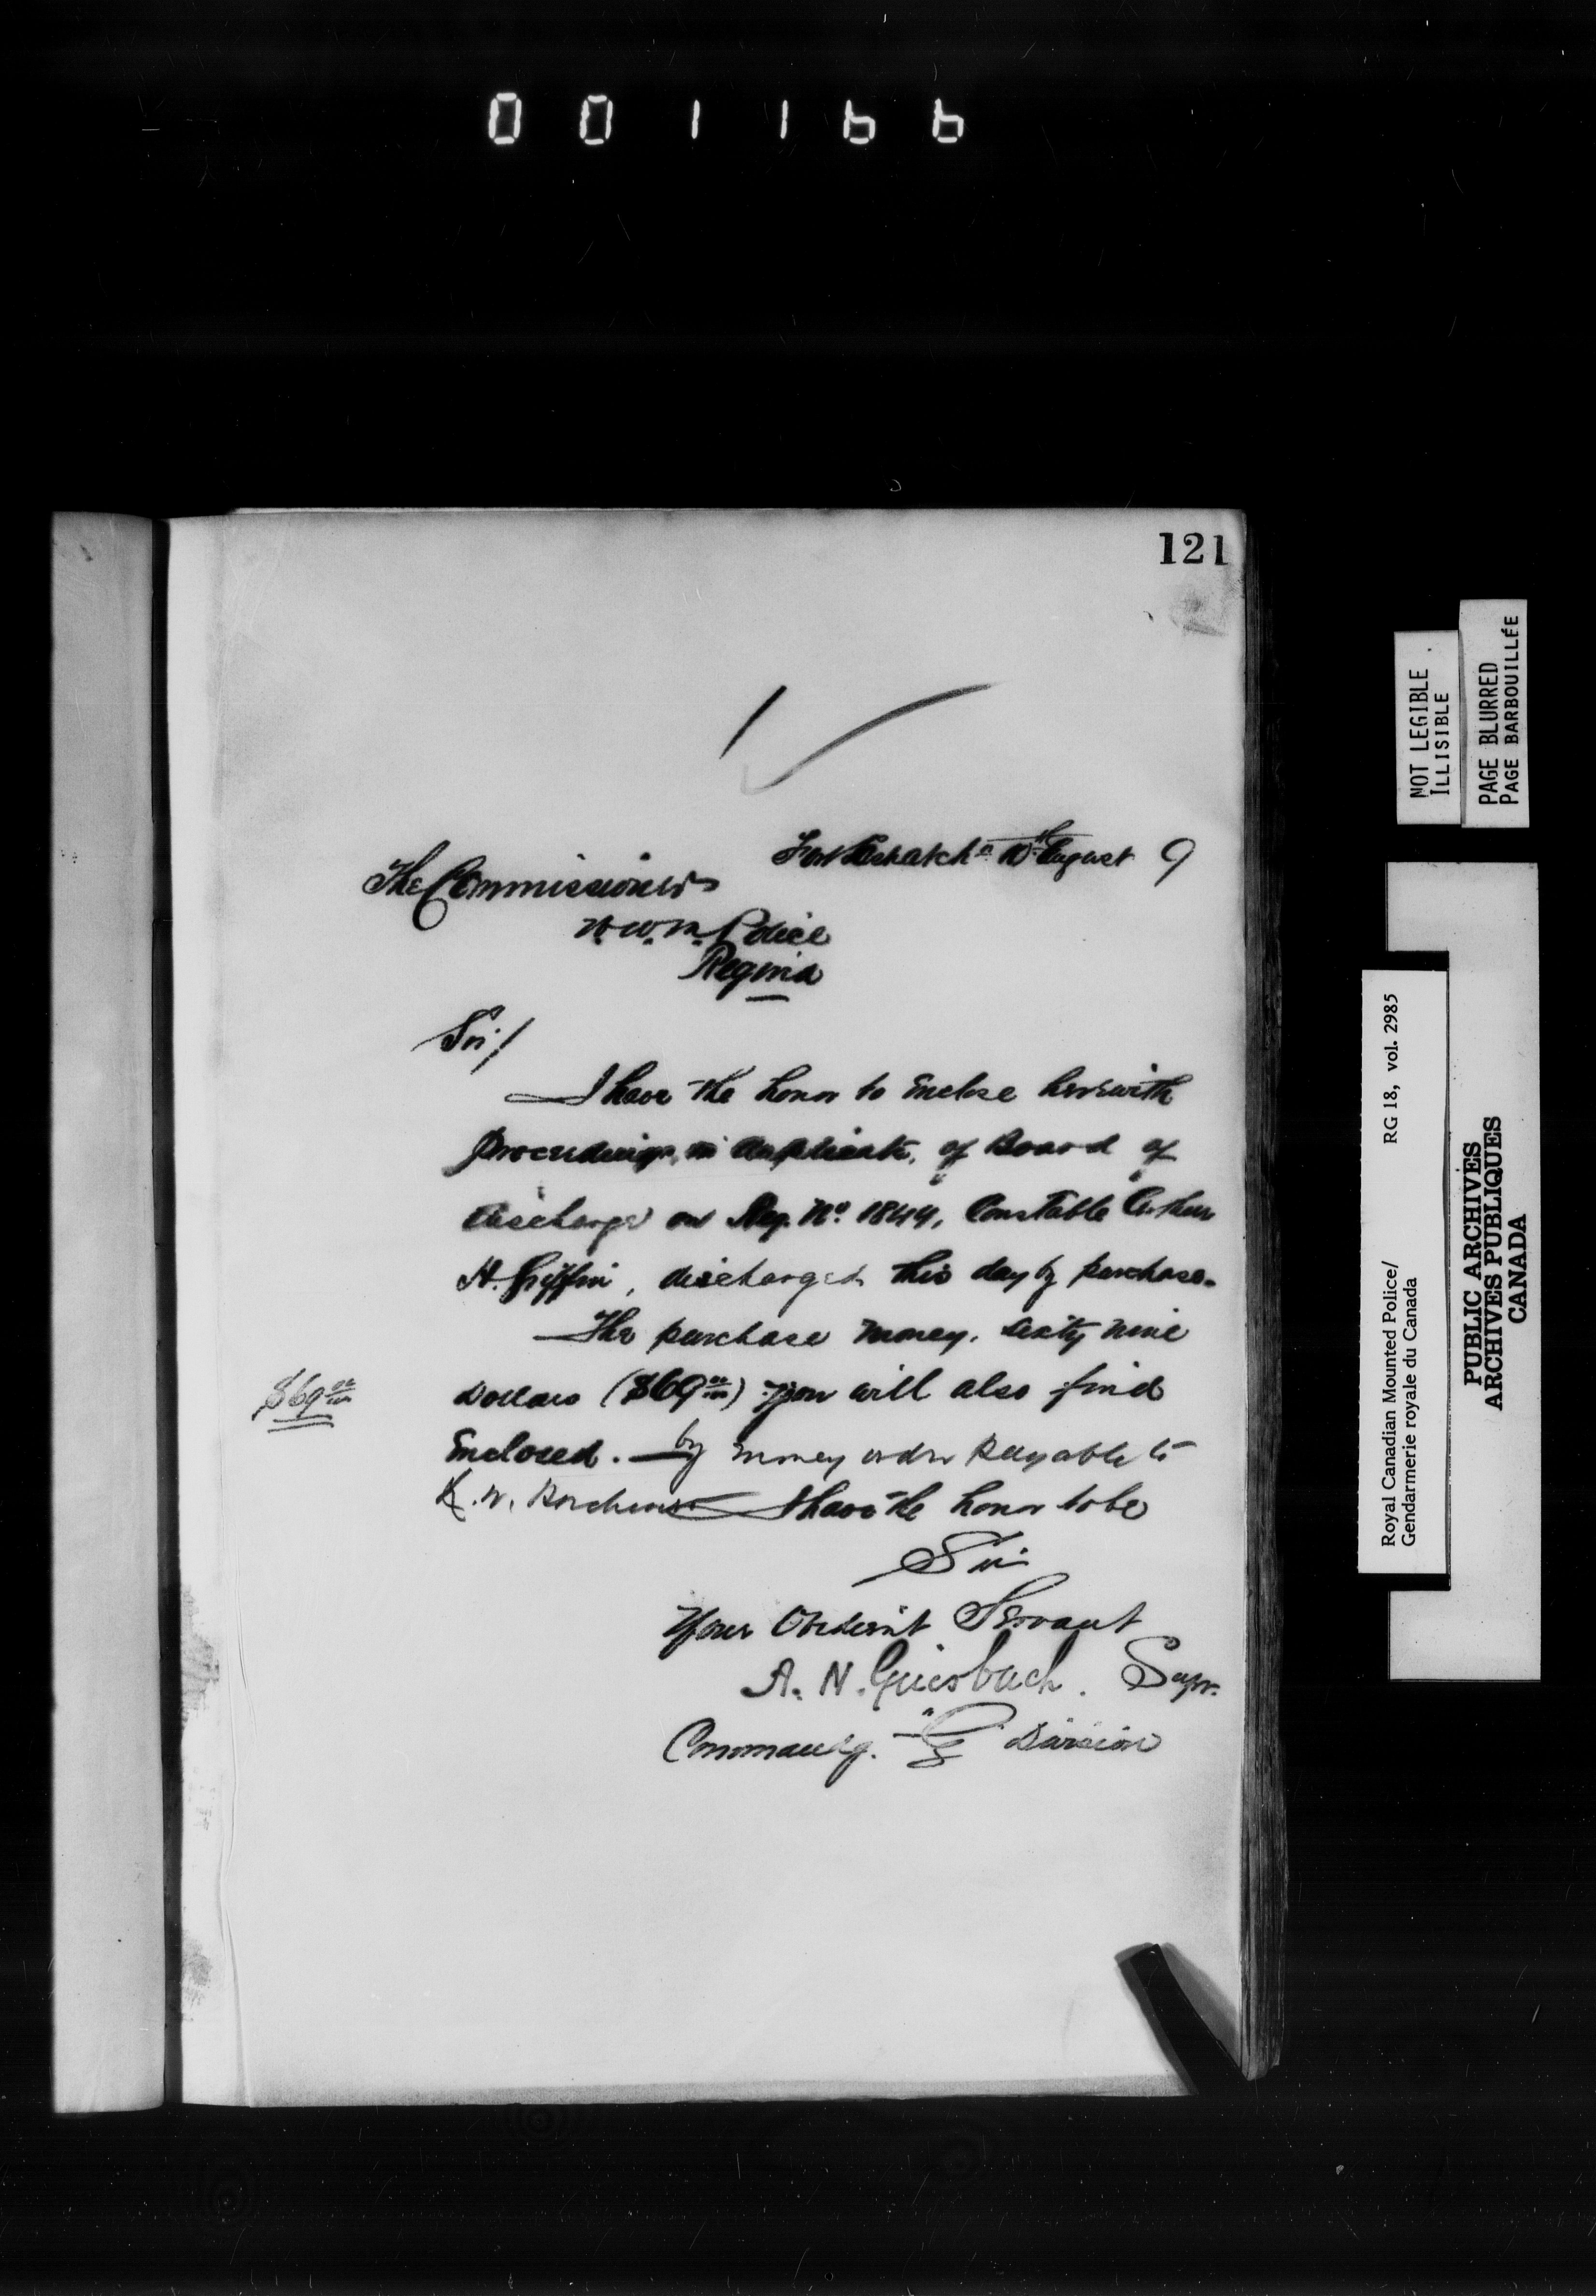 001166
121
Fort Saskatchn 10th August 9
The Commissioner
N.W.M. Police
Regina
Sir/
I have the honor to Enclose herewith
proceedings in duplicate, of Board of
discharge on Reg. No. 1844, Constable Arthur
H. Griffin, discharged this day by purchase.
The purchase money, sixty nine
$69.00
Dollars ($69.00) you will also find
Enclosed. — by money order payable to
I have the honor to be
Sir
Your Obedient Servant
A. H. Griesbach. Supt.
Commandg. "G" Division
NOT LEGIBLE
ILLISIBLE
PAGE BLURRED
PAGE BARBOUILLÉE
Royal Canadian Mounted Police/ RG 18, vol. 2985
Gendarmerie royale du Canada
PUBLIC ARCHIVES
ARCHIVES PUBLIQUES
CANADA